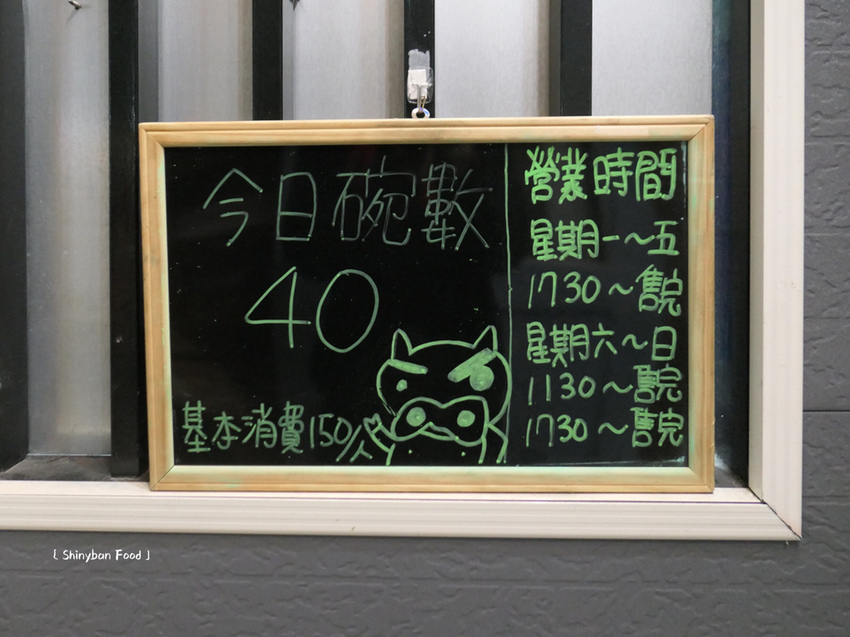 今日碗數
40
基本消費150/人
營業時間
星期一~五
1730~售完
星期六~日
1130~售完
1730~售完
[ Shinyban Food ]